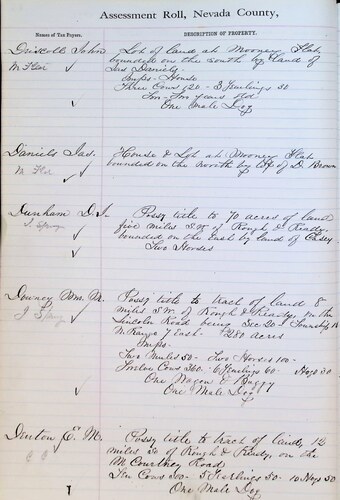 Assessment Roll, Nevada County,
Names of Tax Payers.
DESCRIPTION OF PROPERTY.
Driscoll John
Lot of land at Mooney Flat
M. Flat
bounded on the South by land of
Jas Daniels
Imps - House
Three Cows 120 - 3 Yearlings 30
Two years old
One Male Dog
Daniels Jas.
House & Lot at Mooney Flat
M. Flat
bounded on the North by of D. Brown
Dunham D. S.
Possy title to 70 acres of land
five miles S.W. of Rough & Ready
bounded on the East by land of Casey
Two Horses
Downey Wm. M.
Possy title to tract of land 8
miles S.W. of Rough & Ready, on the
Lincoln Road being Sec 20 Township 15
N. Range 7 East. 280 acres
Imps.
Two Mules 50 - Two Horses 100 -
Twelve Cows 360 - 6 Yearlings 60 - Hogs 30
One Wagon & Buggy
One Male Dog
Denton E. M.
Possy title to tract of land, 12
miles So of Rough & Ready, on the
McCourtney Road
Ten Cows 300 - 5 Yearlings 50 - 10 Hogs 50
One Male Dog